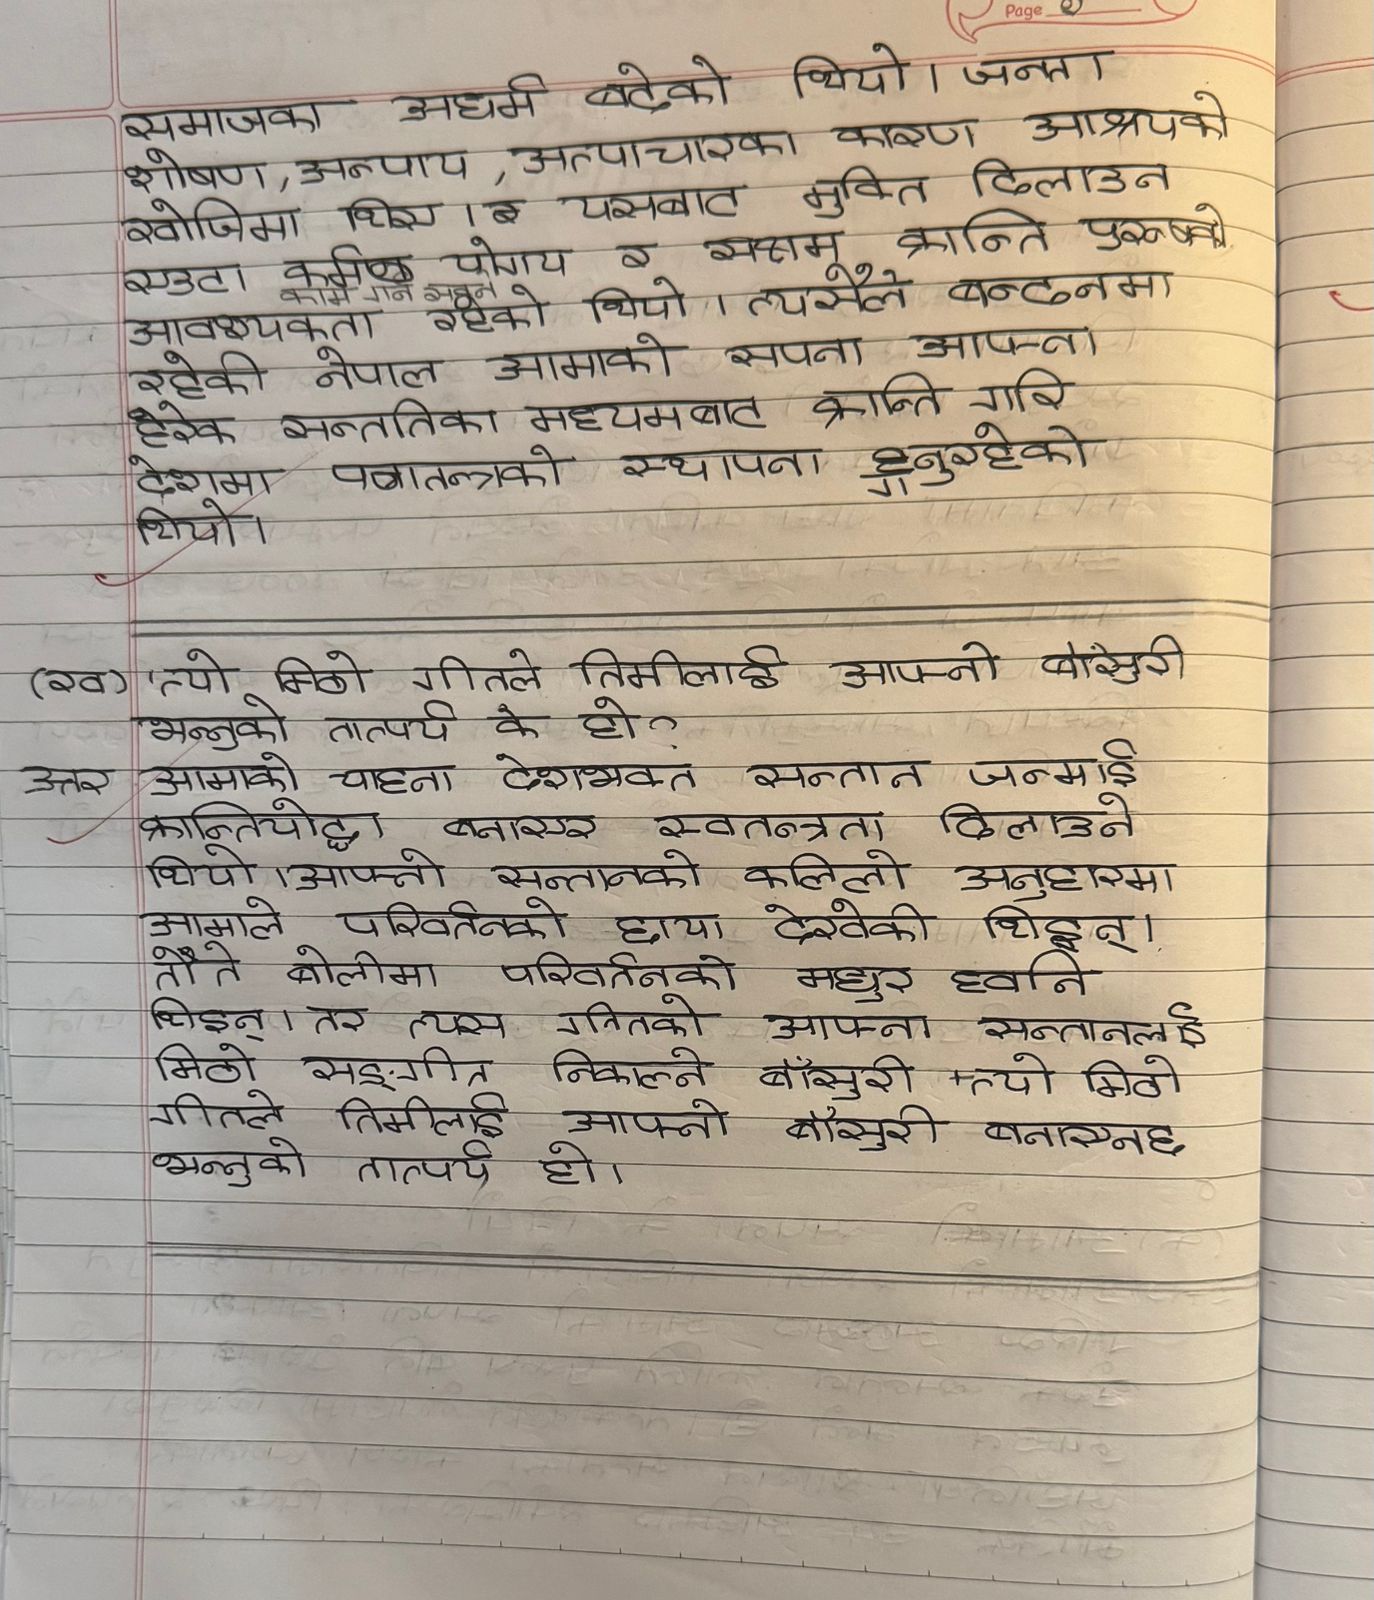 Page 2
समाजका अधर्म बढेको थियो। जनता
शोषण, अन्याय, अत्याचारका कारण आश्रयको
खोजिमा थिए। यसबाट मुक्ति दिलाउन
एउटा कर्मिष्ठ योगय र सक्षम क्रान्ति पुरुषको
काम गर्न सक्ने
आवश्यकता रहेको थियो। त्यसैले बन्दनमा
रहेकी नेपाल आमाको सपना आफ्ना
हरेक सन्ततिका मध्यमबाट क्रान्ति गरि
देशमा प्रजातन्त्रको स्थापना हुनुरहेको
थियो।
(ख) 'त्यो मिठो गीतले तिमीलाई आफ्नो बाँसुरी
भन्नुको तात्पर्य के हो?
उत्तर आमाको चाहना देशभक्त सन्तान जन्माई
क्रान्तियोद्धा बनाएर स्वतन्त्रता दिलाउने
थियो। आफ्नो सन्तानको कलिलो अनुहारमा
आमाले परिवर्तनको छाया देखेकी थिइन्।
तोते बोलीमा परिवर्तनको मधुर ध्वनि
थिइन्। तर त्यस गीतको आफ्ना सन्तानलाई
मिठो सङ्गीत निकाल्ने बाँसुरी त्यो मिठो
गीतले तिमीलाई आफ्नो बाँसुरी बनाएनछ
भन्नुको तात्पर्य हो।